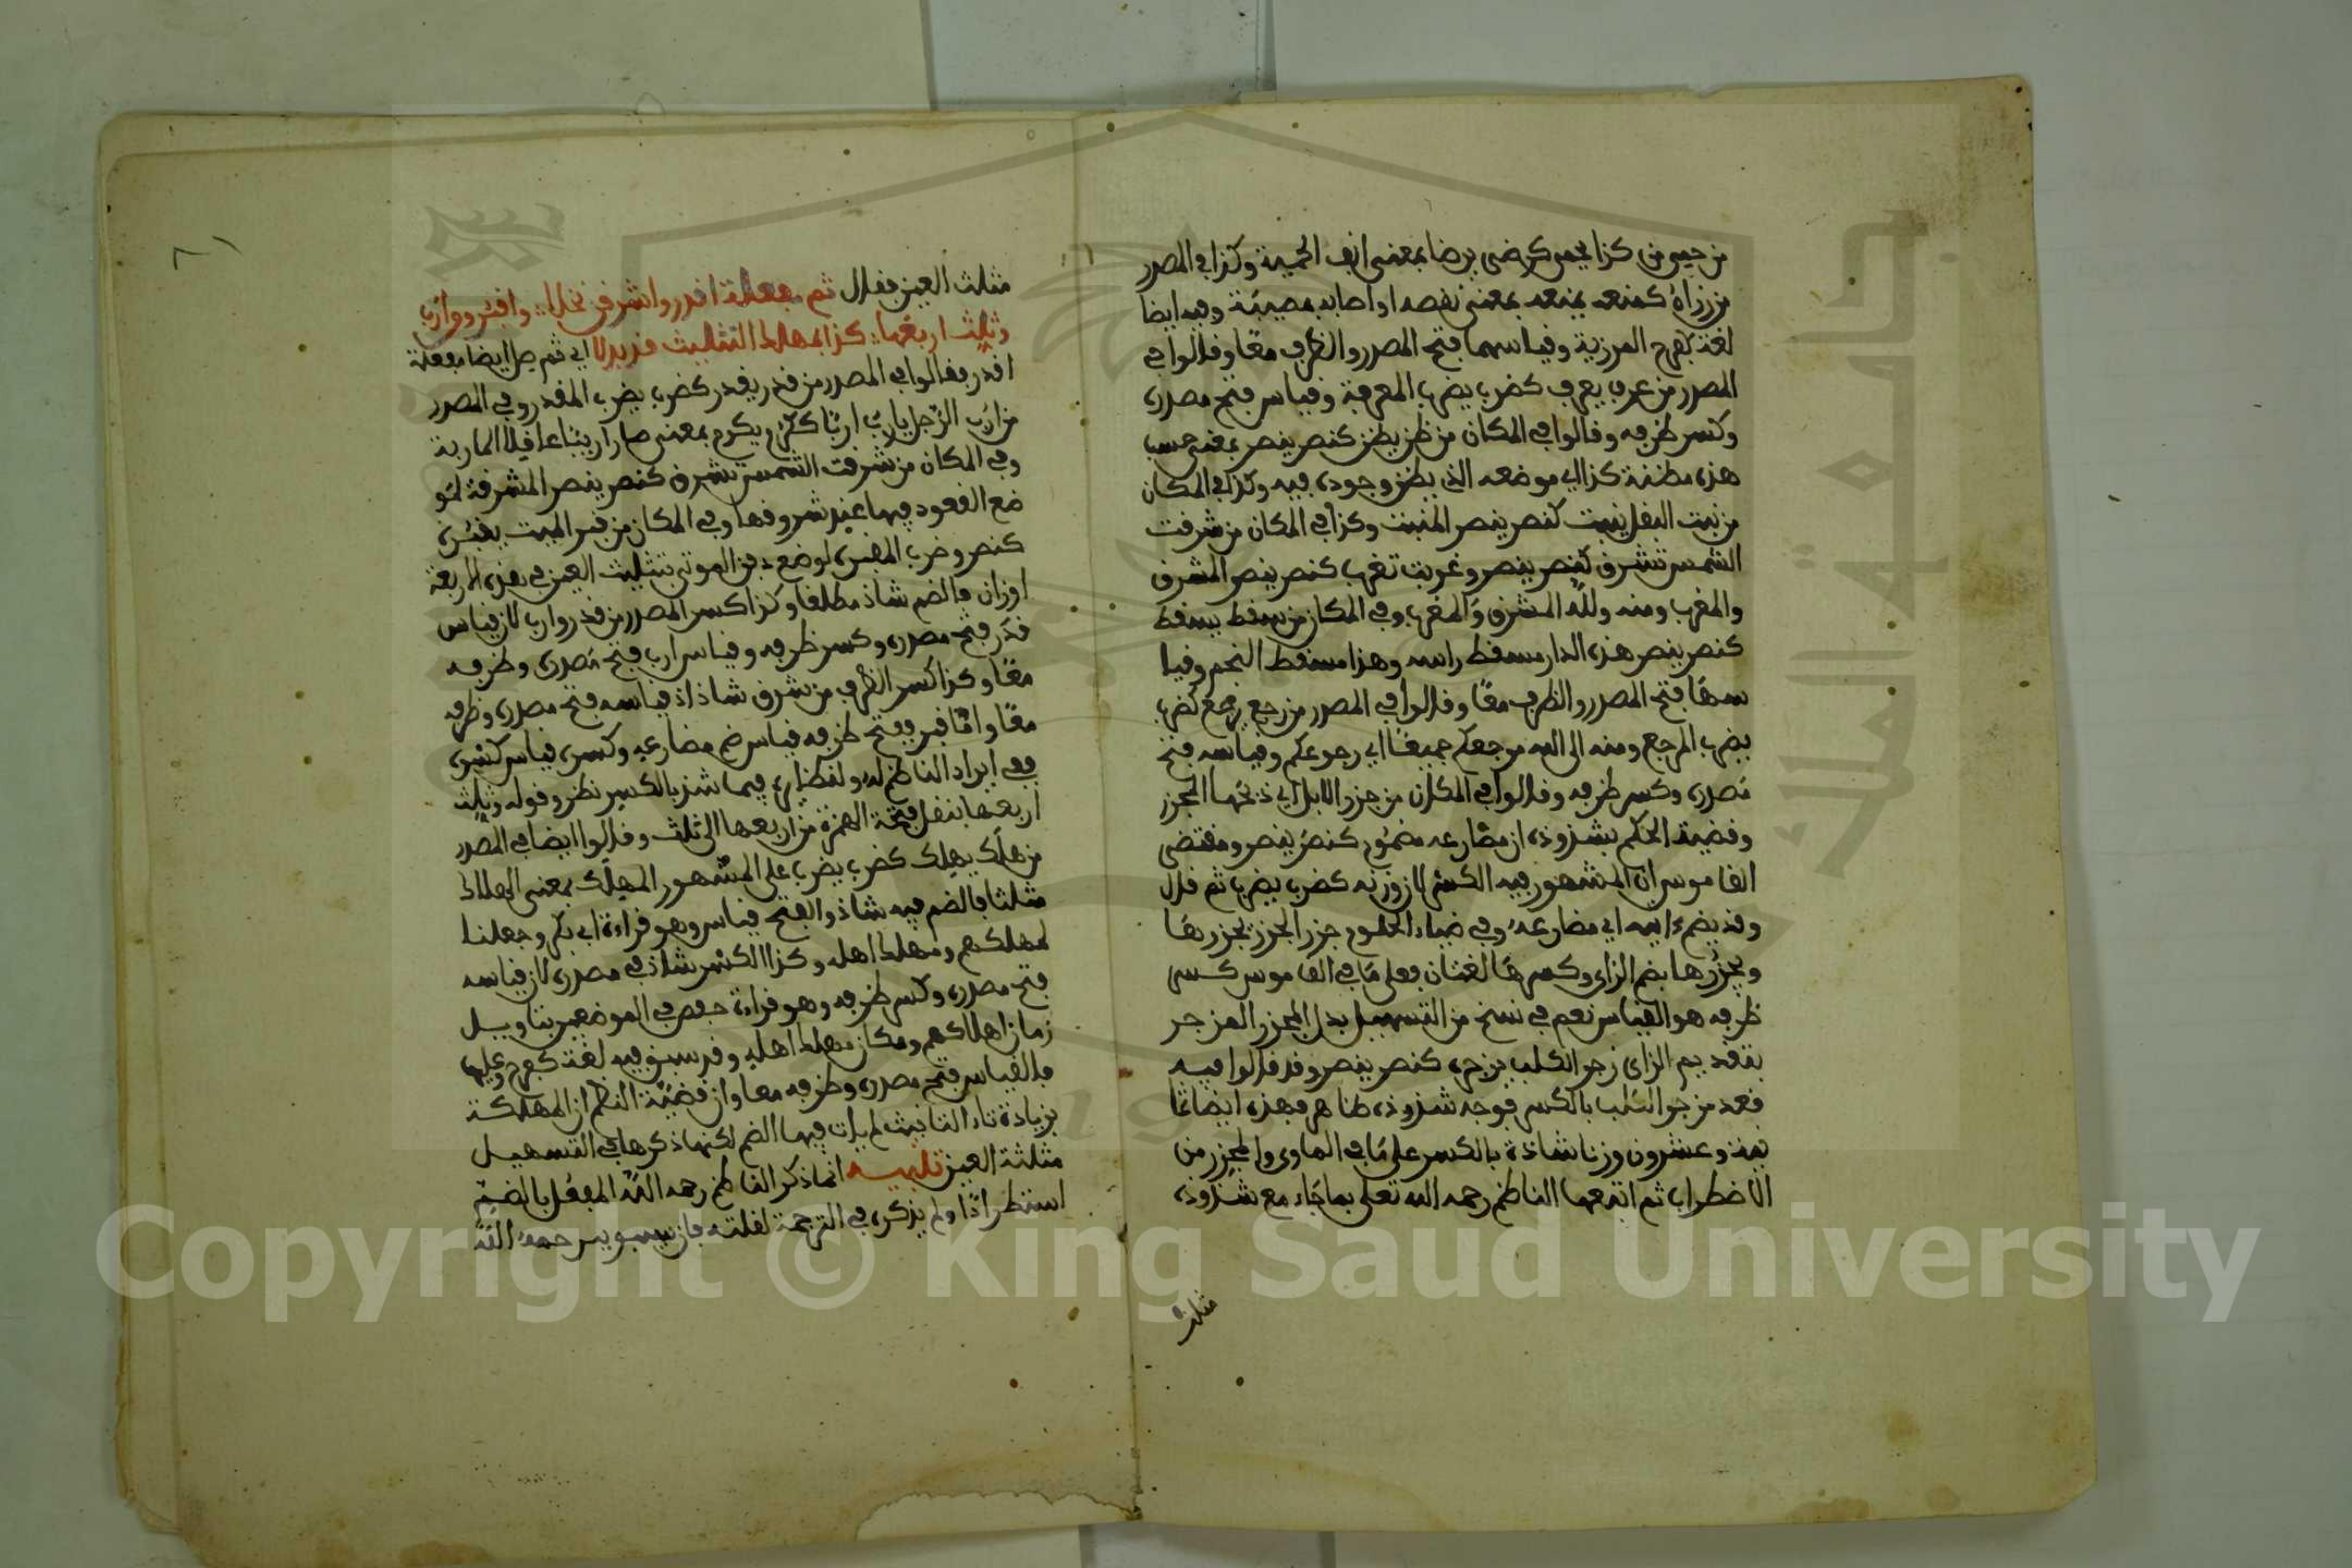 من حمي من كذا يحمى كرضى يرضا بمعنى انف الحمية وكذا في المصدر
من رزأه كمنعه يمنعه بمعنى نقصه او اصابه بمصيبة وفيه ايضا
لغة كفرح المرزية وقياسهما فتح المصدر والظرف معًا وقالوا في
المصدر من عرف يعرف كضرب يضرب المعرفة وقياس فتح مصدره
وكسر ظرفه وقالوا في المكان من ظن يظن كنصر ينصر بمعنى حسب
هذه مظنة كذا اي موضعه الذي يظن وجوده فيه وكذا في المكان
من نبت البقل ينبت كنصر ينصر المنبت وكذا في المكان من شرقت
الشمس تشرق كنصر ينصر وغربت تغرب كنصر ينصر المشرق
والمغرب ومنه ولله المشرق والمغرب وفي المكان من سقط يسقط
كنصر ينصر هذه الدار مسقط راسه وهذا مسقط النجم وقيا
سهما فتح المصدر والظرف معًا وقالوا في المصدر من رجع يرجع كضرب
يضرب المرجع ومنه الى الله مرجعكم جميعًا اي رجوعكم وقياسه فتح
مصدره وكسر ظرفه وقالوا في المكان من جزر الابل اي ذبحها المجزر
وقضية الحكم بشذوذه ان مضارعه مضموم كنصر ينصر ومقتضى
القاموس ان المشهور فيه الكسر لان وزنه كضرب يضرب ثم قال
وقد يضم ءاتيه اي مضارعه وفي ضياء الحلوم جزر الجزر يجزرها
ويجزُرها بضم الزاى وكسرها لغتان فعلى ما في القاموس كسر
ظرفه هو القياس نعم في نسخ من التسهيل بدل المجزر المزجر
بتقديم الزاى زجر الكلب يزجره كنصر ينصر وقد قالوا فيه
قعد مزجر الكلب بالكسر فوجه شذوذه ظاهر فهذه ايضا ثما
نية وعشرون وزنا شاذة بالكسر على ما في الماوي والمجزر من
الاضطراب ثم اتبعها الناظم رحمه الله تعلى بما جاء مع شذوذه
مثلث
مثلث العين فقال ثم مفعلة اقدر واشرقن نخلا ∴ واقبر ووارب
وثلث اربعها ∴ كذا لمهلك التثليث قد بذلا اي ثم صل ايضا مفعلة
اقدر فقالوا في المصدر من قدر يقدر كضرب يضرب المقدر وفي المصدر
من ارب الرجل يارب اربًا ككرم يكرم بمعنى صار اريبا عاقلا الماربة
وفي المكان من شرقت الشمس تشرق كنصر ينصر المشرقة لمو
ضع القعود فيها عند شروقها وفي المكان من قبر الميت يقبره
كنصر وضرب المقبرة لوضع دفن الموتى بتثليث العين في هذه الاربعة
اوزان فالضم شاذ مطلقا وكذا كسر المصدر من قدر وارب لان قياس
قدر فتح مصدره وكسر ظرفه وقياس ارب فتح مصدره وظرفه
معًا وكذا كسر الظرف من شرق شاذ اذ قياسه فتح مصدره وظرفه
معًا واما قبر ففتح ظرفه قياس ضم مضارعه وكسره قياس كسره
ففي ايراد الناظم له فيما شذ بالكسر نظر وقوله وثلث
اربعها بنقل فتحة الهمزة من اربعها الى ثلث وقالوا ايضا في المصدر
من هلك يهلك كضرب يضرب على المشهور المهلك بمعنى الهلاك
مثلثا فالضم فيه شاذ والفتح قياس وهو قراءة ابي بكر وجعلنا
لمهلكهم ومهلك اهله وكذا الكسر شاذ في مصدره لان قياسه
فتح مصدره وكسر ظرفه وهو قراءة حفص في الموضعين بتاويل
زمان اهلاكهم ومكان مهلك اهله وقد سبق فيه لغة كفرح وعليها
فالقياس فتح مصدره وظرفه معا وان قضية النظم ان المهلكة
بزيادة تاء التانيث لم يات فيها الضم لكنها ذكرها في التسهيل
مثلثة العين تنبيه انما ذكر الناظم رحمه الله المفعل بالضم
استطرادًا ولم يذكره في الترجمة لقلته فان سيبويه رحمه الله
Copyright © King Saud University